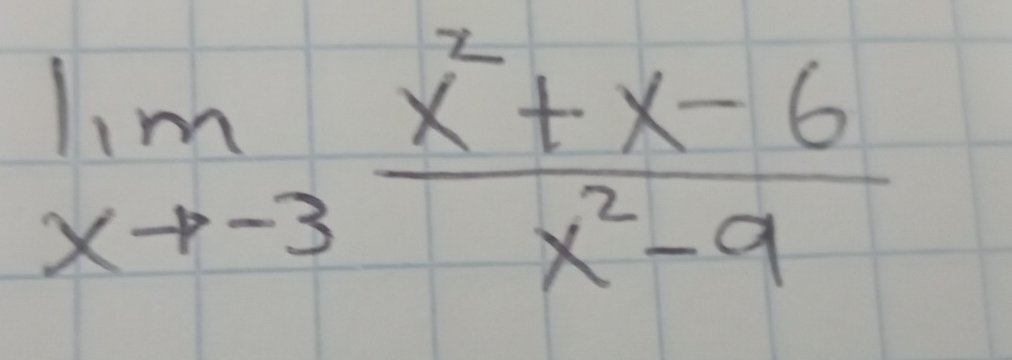 lim x→-3 (x² + x - 6)/(x² - 9)